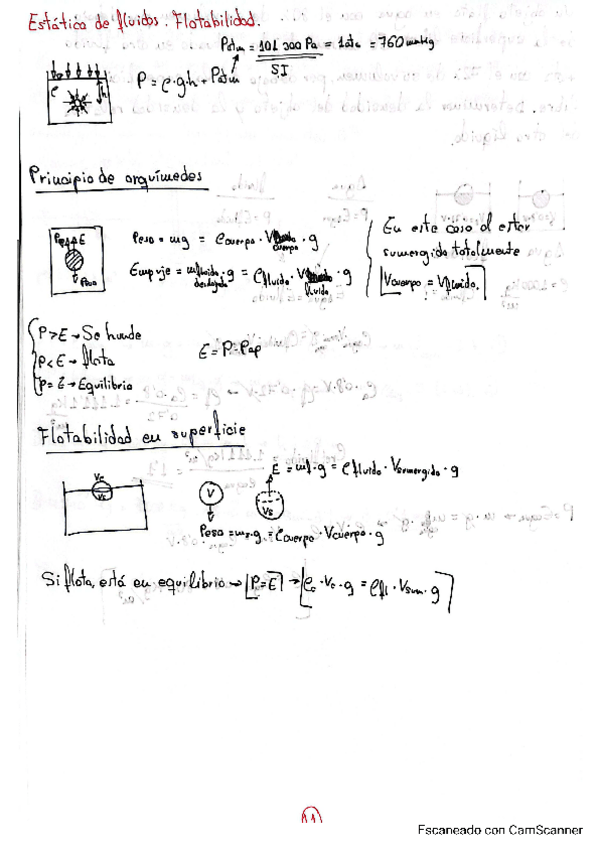 Estática de fluidos. Flotabilidad.
Patm = 101 300 Pa = 1atm = 760 mmHg
SI
P = ρ·g·h + Patm
ρ
h
Principio de arquímedes
E
Peso
Peso = mg = ρcuerpo · Vcuerpo · g
Empuje = mfluido desalojado · g = ρfluido · Vfluido · g
En este caso al estar
sumergido totalmente
Vcuerpo = Vfluido.
P > E → Se hunde
P < E → flota
P = E → Equilibrio
E = P - Pap
Flotabilidad en superficie
E = mf · g = ρfluido · Vsumergido · g
V
Vs
Peso = mc · g = ρcuerpo · Vcuerpo · g
Si flota, está en equilibrio → P=E → ρc · Vc · g = ρfl · Vsum · g
11
Escaneado con CamScanner